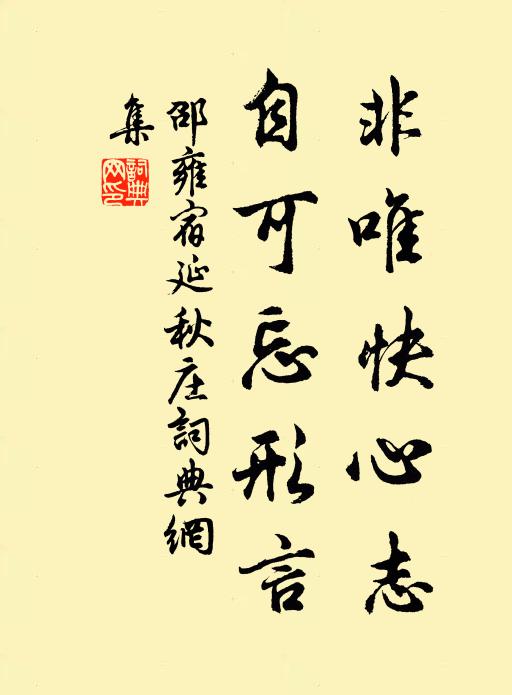 非唯快心志
自可忘形言
邵雍宿延秋庄詞典網
集
詞典
网印